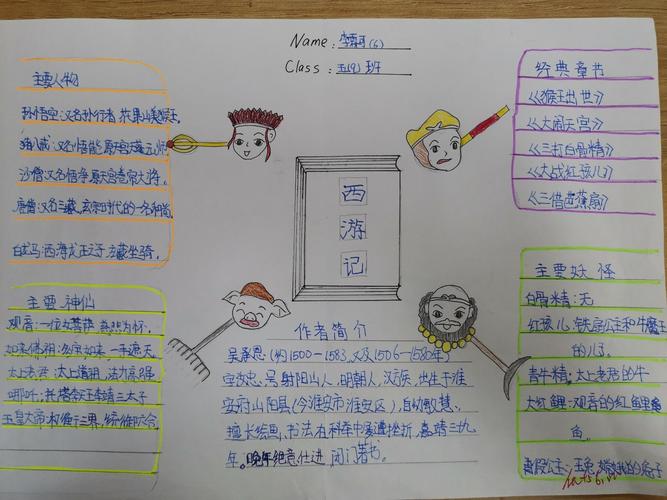 Name: 李霁珂(6)
Class: 五(9) 班
主要人物
孙悟空:又名孙行者 花果山美猴王,
猪八戒:又名悟能 原天宫天蓬元帅
沙僧:又名悟净 原天宫卷帘大将,
唐僧:又名三藏,玄奘
时代的一名和尚
白龙马:西海龙王三子 玄藏坐骑,
西
游
记
经典章节
《猴王出世》
《大闹天宫》
《三打白骨精》
《大战红孩儿》
《三借芭蕉扇》
主要神仙
观音:一位女菩萨 慈悲为怀,
如来佛祖:多宝如来,一手遮天
太上老君:太上道祖,法力高强
哪吒:托塔天王李靖三太子
玉皇大帝:权衡三界,统御六合,
作者简介
吴承恩(约1500-1583,又及1506-1580年)
字汝忠,号射阳山人,明朝人,汉族,出生于淮
安府山阳县(今淮安市淮安区),自幼敏慧,
擅长绘画,书法,在科举中屡遭挫折,嘉靖三十九
年。晚年绝意仕进 闭门著书。
主要妖怪
白骨精:无
红孩儿:铁扇公主和牛魔王
的儿子,
青牛精:太上老君的牛
大红鲤:观音的红鲤鱼
鱼。
真假公主:玉兔 嫦娥
的兔子